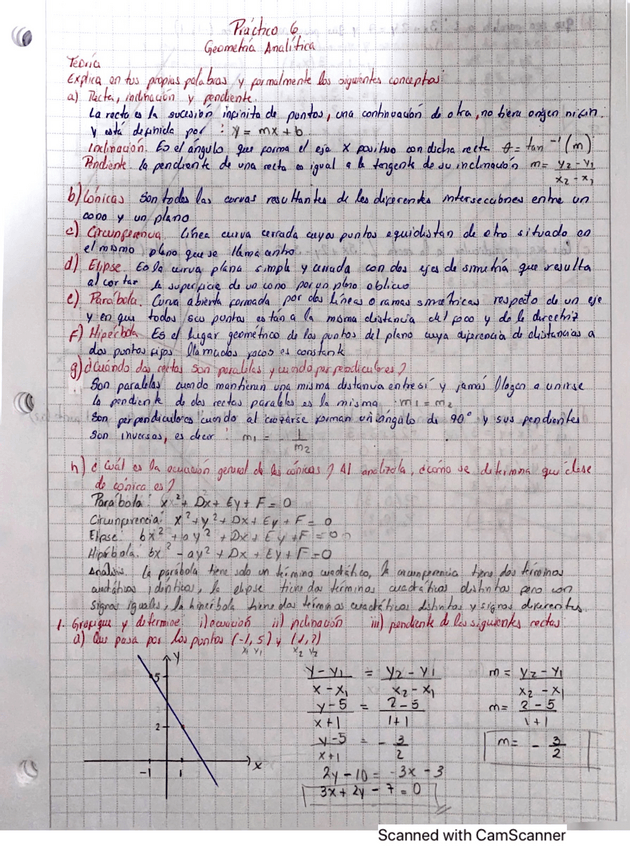 Práctico 6
Geometría Analítica
Teoría
Explica en tus propias palabras y formalmente los siguientes conceptos:
a) Recta, inclinación y pendiente.
La recta es la sucesión infinita de puntos, una continuación de otra, no tiene origen ni fin.
y está definida por : y = mx + b.
Inclinación. Es el ángulo que forma el eje X positivo con dicha recta θ = tan⁻¹ (m)
Pendiente. la pendiente de una recta es igual a la tangente de su inclinación m = y₂ - y₁ / x₂ - x₁
b) Cónicas Son todas las curvas resultantes de las diferentes intersecciones entre un
cono y un plano
c) Circunferencia Línea curva cerrada cuyos puntos equidistan de otro situado en
el mismo plano que se llama centro.
d) Elipse. Es la curva plana simple y cerrada con dos ejes de simetría que resulta
al cortar la superficie de un cono por un plano oblicuo
e) Parábola. Curva abierta formada por dos líneas o ramas simétricas respecto de un eje
y en que todos sus puntos están a la misma distancia del foco y de la directriz
f) Hipérbola Es el lugar geométrico de los puntos del plano cuya diferencia de distancias a
dos puntos fijos llamados focos es constante
g) ¿Cuándo dos rectas son paralelas y cuando perpendiculares?
Son paralelas cuando mantienen una misma distancia entre sí y jamás llegan a unirse
la pendiente de dos rectas paralelas es la misma : m₁ = m₂
Son perpendiculares cuando al cruzarse forman un ángulo de 90° y sus pendientes
son inversas, es decir : m₁ = 1 / m₂
h) ¿Cuál es la ecuación general de las cónicas? Al analizarla, ¿cómo se determina qué clase
de cónica es?
Parábola: x² + Dx + Ey + F = 0
Circunferencia: x² + y² + Dx + Ey + F = 0
Elipse: bx² + ay² + Dx + Ey + F = 0
Hipérbola: bx² - ay² + Dx + Ey + F = 0
Análisis. la parábola tiene solo un término cuadrático, la circunferencia tiene dos términos
cuadráticos idénticos, la elipse tiene dos términos cuadráticos distintos pero con
signos iguales, la hipérbola tiene dos términos cuadráticos distintos y signos diferentes.
1. Grafique y determine: i) ecuación ii) inclinación iii) pendiente de las siguientes rectas:
a) Que pasa por los puntos (-1, 5) y (1, 2)
x₁ y₁ x₂ y₂
y
5
2
-1 1 x
y - y₁ / x - x₁ = y₂ - y₁ / x₂ - x₁
y - 5 / x + 1 = 2 - 5 / 1 + 1
y - 5 / x + 1 = - 3 / 2
2y - 10 = -3x - 3
3x + 2y - 7 = 0
m = y₂ - y₁ / x₂ - x₁
m = 2 - 5 / 1 + 1
m = - 3 / 2
Scanned with CamScanner